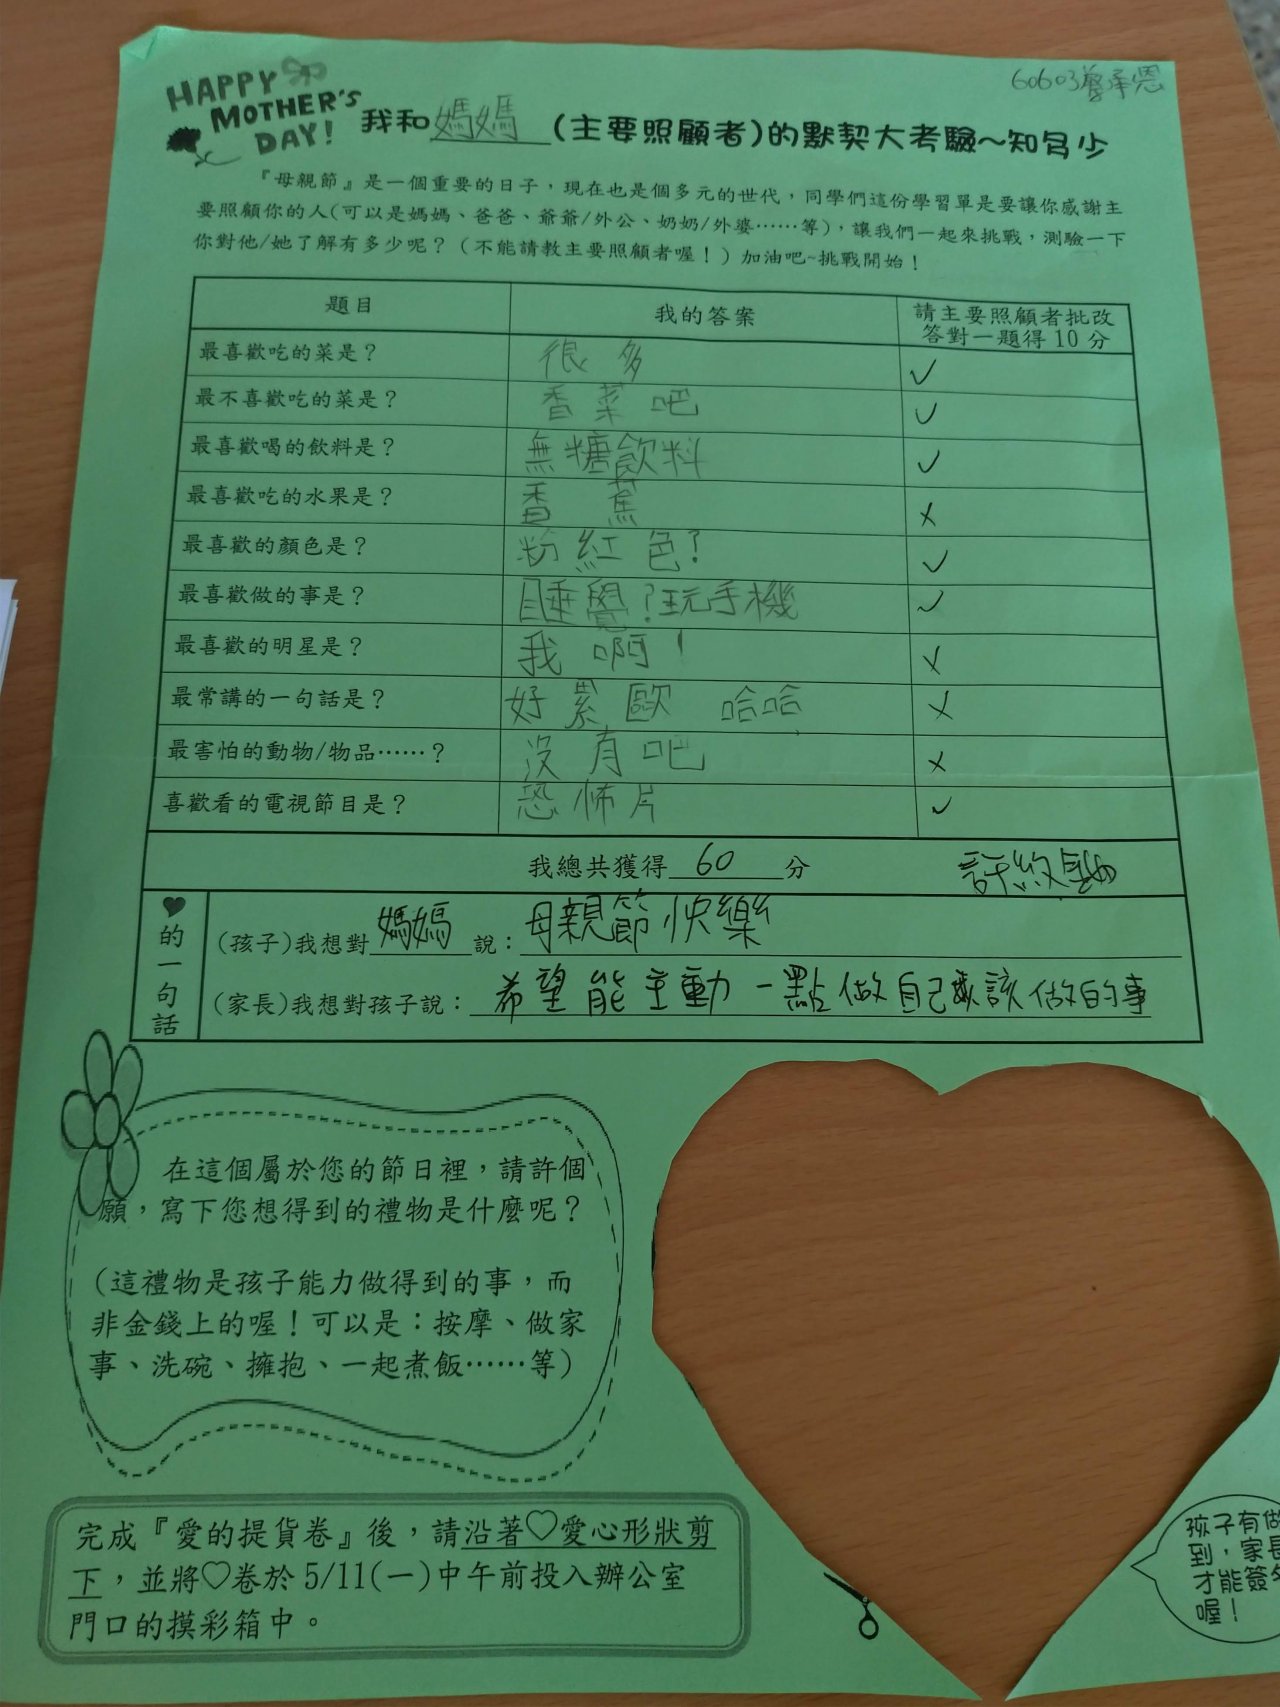 60603
HAPPY
MOTHER'S
DAY!
我和媽媽(主要照顧者)的默契大考驗~知多少
『母親節』是一個重要的日子，現在也是個多元的世代，同學們這份學習單是要讓你感謝主
要照顧你的人(可以是媽媽、爸爸、爺爺/外公、奶奶/外婆……等)，讓我們一起來挑戰，測驗一下
你對他/她了解有多少呢？（不能請教主要照顧者喔！）加油吧~挑戰開始！
題目 我的答案 請主要照顧者批改
答對一題得10分
最喜歡吃的菜是？ 很多 ✓
最不喜歡吃的菜是？ 香菜吧 ✓
最喜歡喝的飲料是？ 無糖飲料 ✓
最喜歡吃的水果是？ 香蕉 ×
最喜歡的顏色是？ 粉紅色? ✓
最喜歡做的事是？ 睡覺?玩手機 ✓
最喜歡的明星是？ 我啊！ ×
最常講的一句話是？ 好累歐 哈哈 ×
最害怕的動物/物品……？ 沒有吧 ×
喜歡看的電視節目是？ 恐怖片 ✓
我總共獲得60分
♥的一句話
(孩子)我想對媽媽說：母親節快樂
(家長)我想對孩子說：希望能主動一點做自己應該做的事
在這個屬於您的節日裡，請許個
願，寫下您想得到的禮物是什麼呢？
(這禮物是孩子能力做得到的事，而
非金錢上的喔！可以是：按摩、做家
事、洗碗、擁抱、一起煮飯……等)
完成『愛的提貨卷』後，請沿著♡愛心形狀剪
下，並將♡卷於5/11(一)中午前投入辦公室
門口的摸彩箱中。
孩子有做
到，家長
才能簽名
喔！